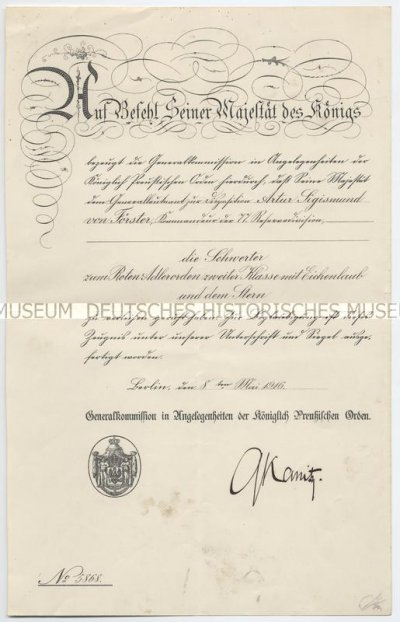 Auf Befehl Seiner Majestät des Königs
bezeugt die Generalkommission in Angelegenheiten der
Königlich Preußischen Orden hierdurch, daß Seine Majestät
dem Generalleutnant zur Disposition Artur Sigismund
von Förster, Kommandeur der 77. Reservedivision,
die Schwerter
zum Roten Adlerorden zweiter Klasse mit Eichenlaub
und dem Stern
MUSEUM DEUTSCHES HISTORISCHES MUSE
zu verleihen geruht haben. Zur Beglaubigung ist dieses
Zeugnis unter unserer Unterschrift und Siegel ausge-
fertigt worden.
Berlin, den 8ten Mai 1916.
Generalkommission in Angelegenheiten der Königlich Preußischen Orden.
Kanitz.
No 5868.